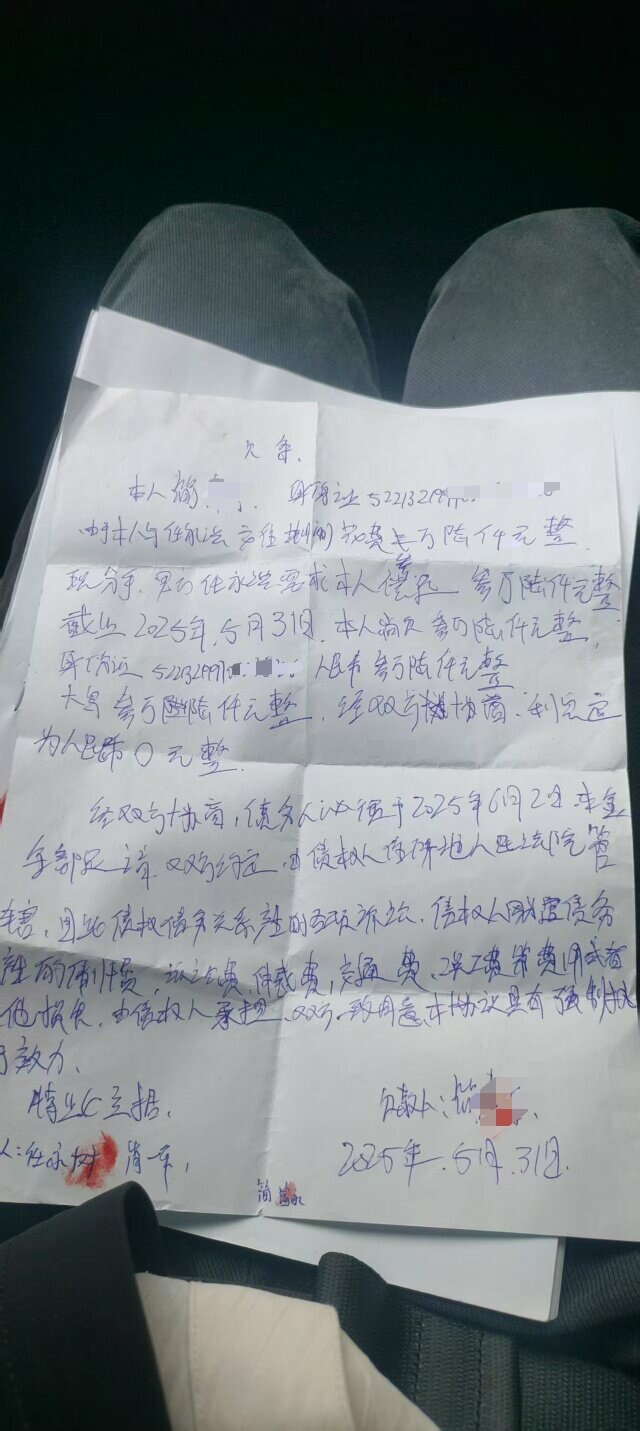 欠条
本人 身份证 5221321991
由于本人与任永洪交往期间花费叁万陆仟元整
现分手,男方任永洪要求本人偿还 叁万陆仟元整
截止 2025年5月31日,本人尚欠叁万陆仟元整,
身份证 522132991 人民币叁万陆仟元整
大写 叁万陆仟元整,经双方协商,利息定
为人民币 0 元整.
经双方协商,债务人必须于2025年6月2日 本金
全部还清 双方约定,由债权人住所地人民法院管
辖,因此债权债务关系产生的各项诉讼,债权人因追债务
产生的律师费,诉讼费,仲裁费,交通费,误工费等费用或者
他损失,由债权人承担.双方一致同意,本协议具有强制执
行效力.
特此立据. 欠款人:
人: 肖 2025年.5月.31日.
简